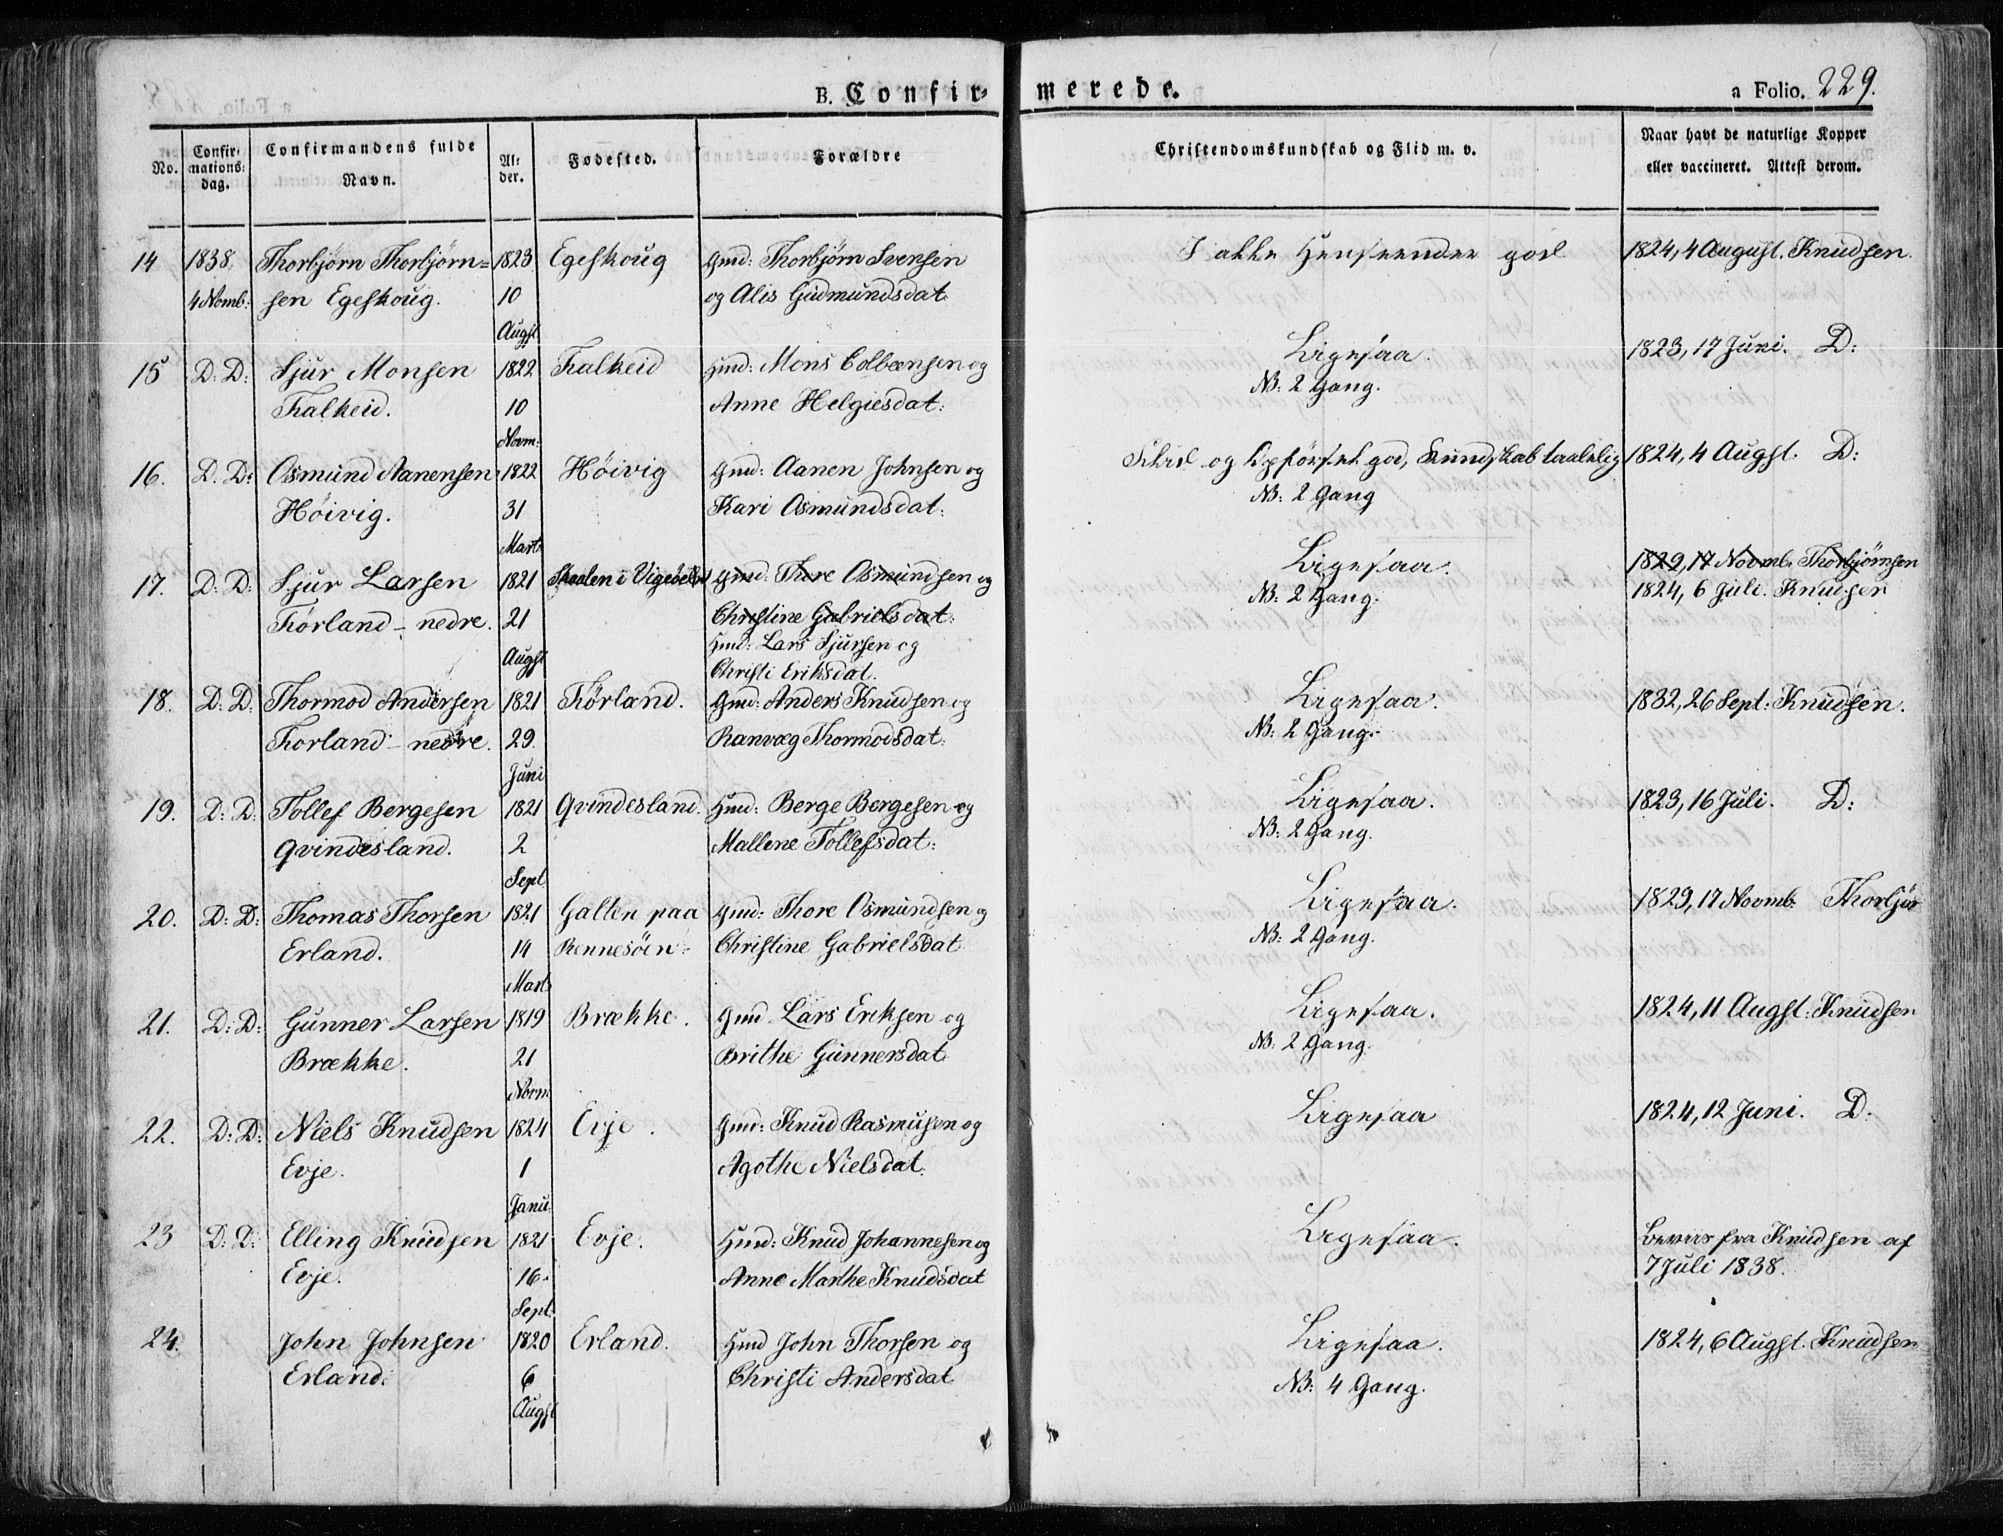 B. Confir-
merede.
a Folio. 229.
No.
Confir-
mations-
dag.
Confirmandens fulde
Navn.
Al-
der.
Fødested.
Forældre
Christendomskundskab og Flid m. v.
Naar havt de naturlige Kopper
eller vaccineret. Attest derom.
14 1838, Thorbjørn Thorbjørn= 1823 Egeskoug Gmd: Thorbjørn Svensen
4 Novmb: sen Egeskoug. 10 og Alis Gudmundsdat:
Augst
I alle Henseender god 1824, 4 August. Knudsen.
15 D: D: Sjur Monsen 1822 Falkeid Hmd: Mons Colbensen og
Falkeid. 10 Anne Helgiesdat:
Novm:
Ligesaa. 1823, 17 Juni. D:
NB: 2 Gang.
16. D. D: Osmund Aanensen 1822 Høivig Gmd: Aanen Johnsen og
Høivig. 31 Kari Osmundsdat:
Mart:
Flid og Opførsel god, Kundskab taalelig 1824, 4 Augst. D:
NB: 2 Gang
17. D: D: Sjur Larsen 1821 Gmd: Thore Osmundsen og
Førland - nedre. 21 Christine Gabrielsdat:
Hmd: Lars Sjursen og
Augst Christi Eriksdat.
Ligesaa. 1829, 17 Novmb. Thorbjørnsen
NB: 2 Gang. 1824, 6 Juli. Knudsen
18. D: D: Thormod Andersen 1821 Førland. Gmd: Anders Knudsen og
Førland - nedre. 29. Ranvæg Thormodsdat:
Juni
Ligesaa. 1832, 26 Sept: Knudsen.
NB: 2 Gang.
19. D: D: Tollef Bergesen 1821 Qvindesland. Hmd: Berge Bergesen og
Qvindesland. 2 Mallene Tollefsdat:
Sept
Ligesaa. 1823, 16 Juli. D:
NB: 2 Gang.
20. D: D: Thomas Thorsen 1821 Galten paa Gmd: Thore Osmundsen og
Erland. 14 Rennesøen: Christine Gabrielsdat
Mart
Ligesaa. 1829, 17 Novmb: Thorbjør
NB: 2 Gang.
21. D: D: Gunner Larsen 1819 Brække. Gmd Lars Eriksen og
Brække. 21 Brithe Gunnersdat
Novm:
Ligesaa. 1824, 11 Augst: Knudsen
NB: 2 Gang.
22. D: D: Niels Knudsen 1824 Evje. Gmd: Knud Rasmusen og
Evje. 1 Agothe Nielsdat:
Janu:
Ligesaa 1824, 12 Juni. D.
23 D: D: Elling Knudsen 1821 Evje. Hmd: Knud Johannesen og
Evje. 16. Anne Marthe Knudsdat
Sept:
Ligesaa. Beviis fra Knudsen af
7 Juli 1838.
24. John Johnsen 1820 Erland. Hmd John Thorsen og
Erland. 6 Christi Andersdat
Augst
Ligesaa. 1824, 6 Augst. Knudsen
NB: 4 Gang.